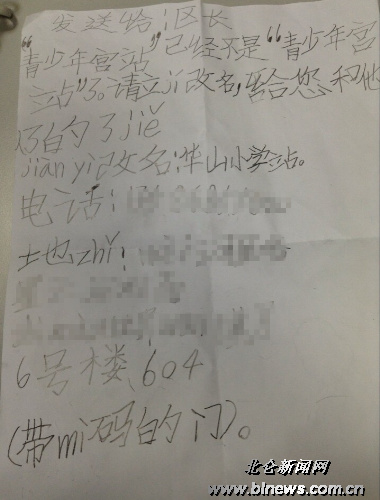 发送给:区长
“青少年宫站”已经不是“青少年宫
站”了。请立jí改名,给您和他
的了jiě
jiàn yì改名:华山小学站。
电话:
地zhǐ:
6号楼、604
(带mì码的门)。
北仑新闻网
www.blnews.com.cn